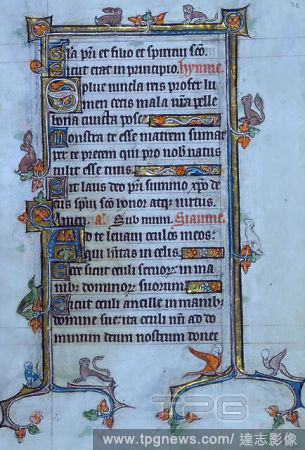 Gła pri et filio et spiritui sco.
Sicut erat in principio. hymne.
Solue vincla reis profer lu
men cecis mala nra pelle
bona cuncta posce
Monstra te esse matrem sumat
per te precem qui pro nobis natus
tulit esse tuus
Sit laus deo pri summo xpo de
cus spiu sco honor atqz virtus.
Amen. a. Sub tuum. Siaume.
Ad te leuaui oculos meos:
qui hitas in celis.
Ecce sicut oculi seruor: in ma
nibz dominor suorum.
Sicut oculi ancille in manibz
domine sue: ita oculi nri ad do
minum deum nostrum donec
TPG
www.tpgnews.com/達志影像